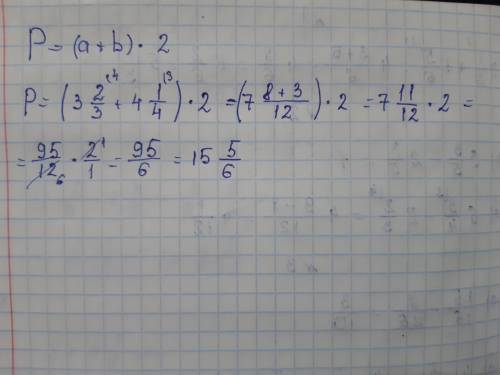 P = (a + b) · 2
P = (3 2/3 ⁽⁴ + 4 1/4 ⁽³) · 2 = (7 8+3/12) · 2 = 7 11/12 · 2 =
= 95/12 6 · 2 1/1 = 95/6 = 15 5/6